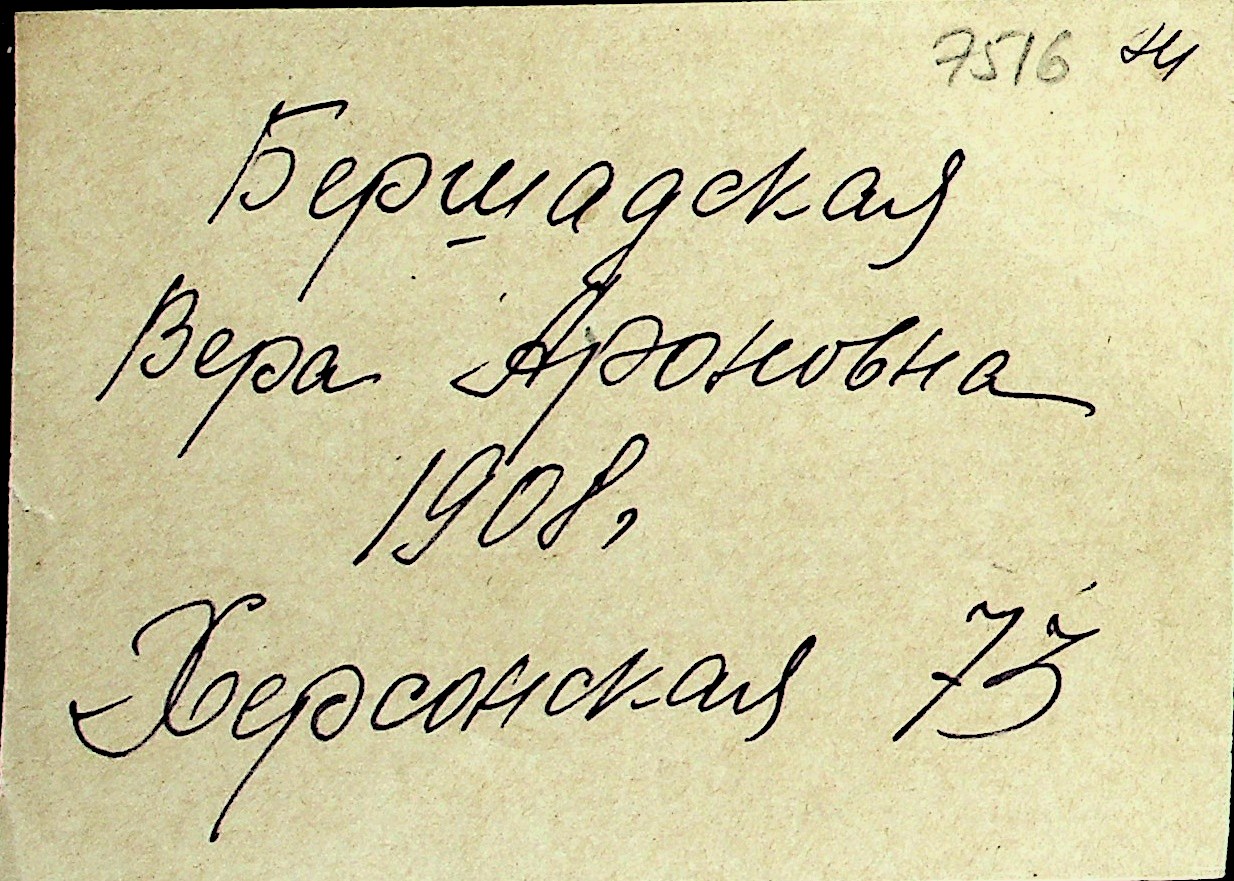 7516
Бершадская
Вера Ароновна
1908,
Херсонская 73